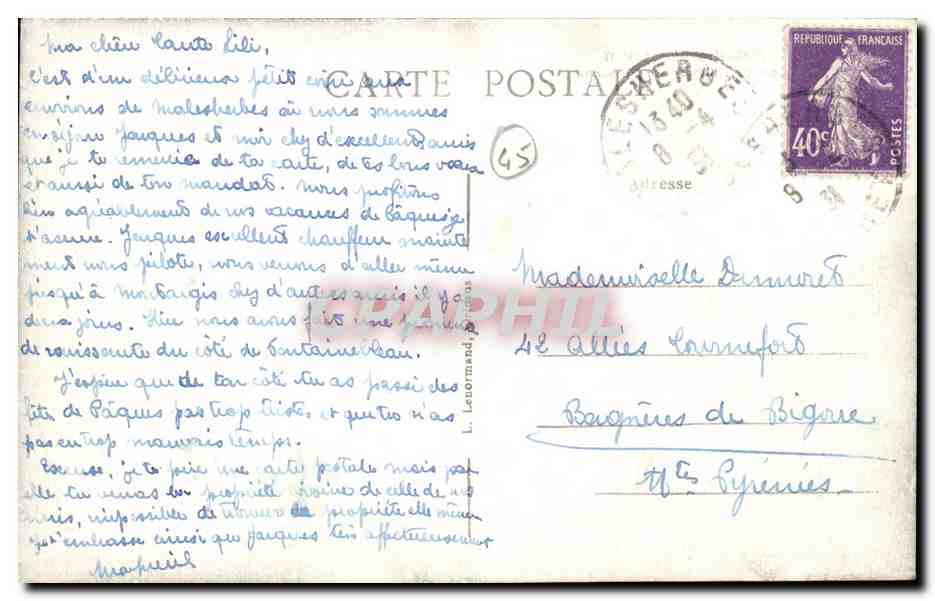 Ma chère Tante Lili,
C'est d'un délicieux petit coin aux
environs de Malesherbes où nous sommes
en séjour Jacques et moi chez d'excellents amis
que je te remercie de ta carte, de tes bons vœux
et aussi de ton mandat. Nous profitons
bien agréablement de nos vacances de Pâques je
t'assure. Jacques excellent chauffeur mainte
nant nous pilote, nous venons d'aller même
jusqu'à Montargis chez d'autres amis il y a
deux jours. Hier nous avons fait une
du côté de Fontainebleau.
J'espère que de ton côté tu as passé des
fêtes de Pâques pas trop tristes et que tu n'as
pas eu trop mauvais temps.
Excuse, je te prie une carte postale mais par
elle tu verras la propriété voisine de celle de nos
amis, impossible de trouver la propriété elle même
Je t'embrasse ainsi que Jacques très affectueusement
CARTE POSTALE
45
MALESHERBES
13 40
8 -4
REPUBLIQUE FRANÇAISE
40c
POSTES
Adresse
Mademoiselle Dumoret
42 Allées Tournefort
Bagnères de Bigorre
Htes Pyrénées
L. Lenormand,
CPAPHIL